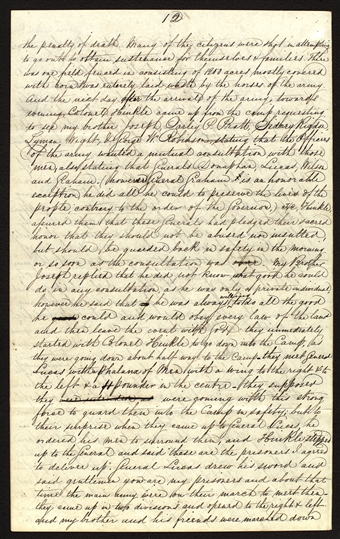 12
the penalty of death. Many of they citizens were shot in attempting
to go out to obtain sustenance for themselves & families. There
was one field fenced in consisting of 1200 acres mostly covered
with corn was entirely laid waste by the horses of the army
And the next day after the arrival of the army, towards
evening, Colonel Hinkle came up from the camp requesting
to see my brother Joseph, Parley P. Pratt, Sidney Rigdon
Lyman Wight, & George W. Robinson, stating that the officers
of the army wanted a mutual consultation with those
men, also stating that Generals Doniphan, Lucas, Wilson
and Graham, (however General Graham is an honorable
exception he did all he could to preserve the lives of the
people contrary to the order of the Governor) & Hinkle
assured them that these Generals had pledged their sacred
honor that they should not be abused nor insulted
but should be guarded back in safety in the morning
or so soon as the consultation was over My brother
Joseph replied that he did not know what good he could
do in any consultation, as he was only a private individual
however he said that he was always willing to do all the good
he could and would obey every law of the land
and then leave the event with God. they immediately
started with Colonel Hinkle to go down into the Camp, as
they were going down about half way to the Camp they met General
Lucas with a phalanx of Men with a wing to the right & to
the left & a 4 pounder in the centre. they supposed
they were coming with this strong
force to guard them into the Camp in safety, but to
their surprise when they came up to General Lucas, he
ordered his men to surround them, and Hinkle stepped
up to the General and said these are the prisoners I agreed
to deliver up. General Lucas drew his sword and
said gentlemen you are my prisoners and about that
time the main army were on their march to meet them
they came up in two divisions and opened to the right & left
and my brother and his friends were marched down